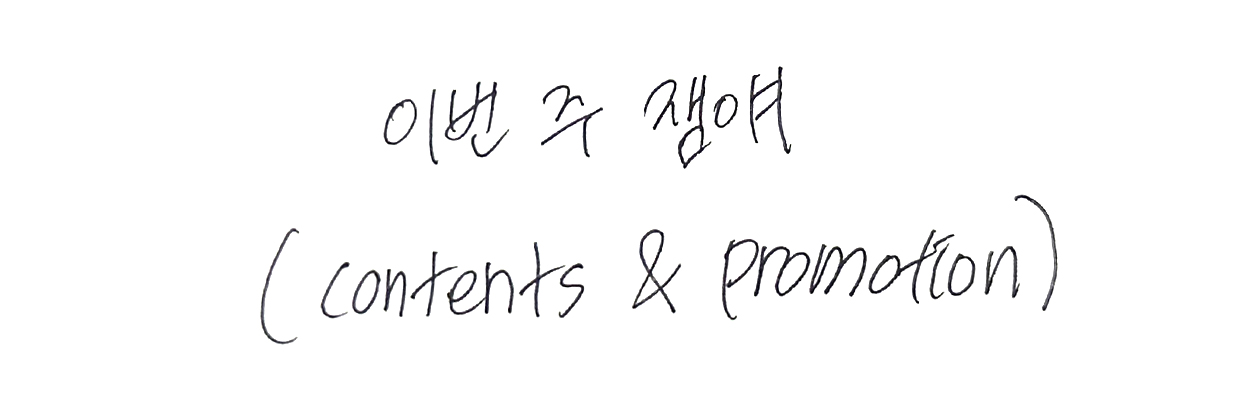 이번 주 쟴얘
(contents & promotion)